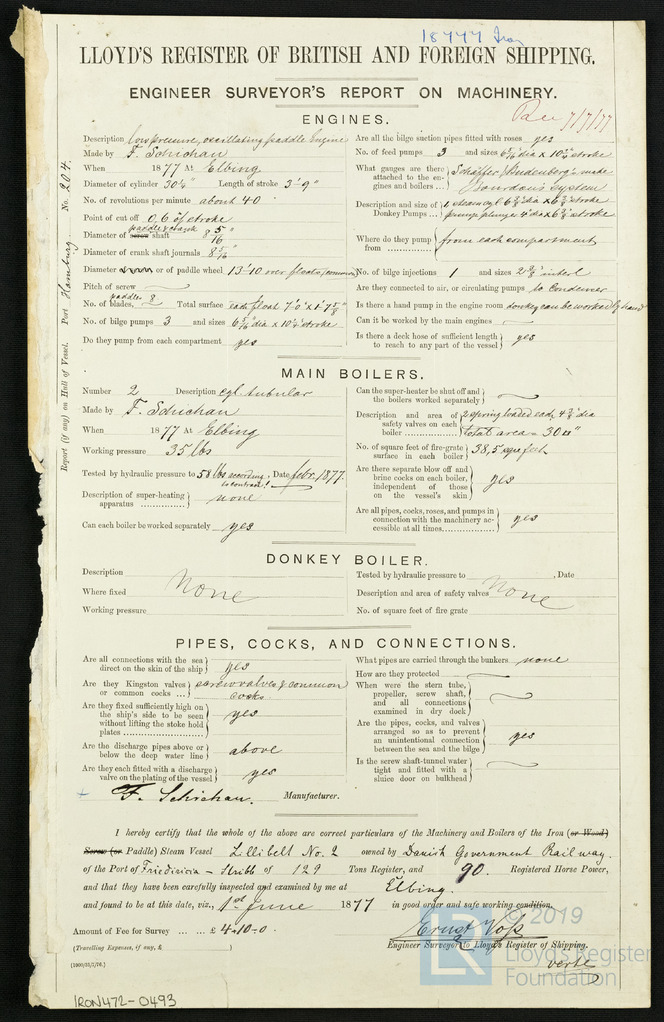 18777 Iron
LLOYD'S REGISTER OF BRITISH AND FOREIGN SHIPPING.
ENGINEER SURVEYOR'S REPORT ON MACHINERY.
Rec 7/7/77
Report (if any) on Hull of Vessel. Port Hamburg No. 204.
ENGINES.
Description low pressure, oscillating paddle Engine
Made by F. Schichau
When 1877 At Elbing
Diameter of cylinder 30¼" Length of stroke 3'9"
No. of revolutions per minute about 40
Point of cut off 0,6 of stroke
Diameter of screw paddle & crank shaft 8 5/16"
Diameter of crank shaft journals 8 5/16"
Diameter of screw or of paddle wheel 13'10 over floats
Pitch of screw
No. of paddles blades, 8 Total surface each float 7'0" x 1'7
No. of bilge pumps 3 and sizes dia x stroke
Do they pump from each compartment yes
Are all the bilge suction pipes fitted with roses yes
No. of feed pumps 3 and sizes dia x stroke
What gauges are there attached to the engines and boilers ... Schäffer, Budenberg's made
Bourdon's system
Description and size of Donkey Pumps ... 1 steam cyl. dia x stroke
pump plunger 4" dia x stroke
Where do they pump from ............... from each compartment
No. of bilge injections 1 and sizes
Are they connected to air, or circulating pumps to Condenser
Is there a hand pump in the engine room donkey can be worked by hand
Can it be worked by the main engines
Is there a deck hose of sufficient length to reach to any part of the vessel yes
MAIN BOILERS.
Number 2 Description cyl. tubular
Made by F. Schichau
When 1877 At Elbing
Working pressure 35 lbs
Tested by hydraulic pressure to 58 lbs according to contract!, Date febr. 1877.
Description of super-heating apparatus ............... none
Can each boiler be worked separately yes
Can the super-heater be shut off and the boilers worked separately
Description and area of safety valves on each boiler .................. 2 spring loaded each 4⅜" dia
total area = 30 □"
No. of square feet of fire-grate surface in each boiler 38,5 sq feet
Are there separate blow off and brine cocks on each boiler, independent of those on the vessel's skin yes
Are all pipes, cocks, roses, and pumps in connection with the machinery accessible at all times............ yes
DONKEY BOILER.
Description
Where fixed None
Working pressure
Tested by hydraulic pressure to , Date
Description and area of safety valves None
No. of square feet of fire grate
PIPES, COCKS, AND CONNECTIONS.
Are all connections with the sea direct on the skin of the ship yes
Are they Kingston valves or common cocks ... screw valves & common
cocks.
Are they fixed sufficiently high on the ship's side to be seen without lifting the stoke hold plates .................. yes
Are the discharge pipes above or below the deep water line above
Are they each fitted with a discharge valve on the plating of the vessel yes
What pipes are carried through the bunkers none
How are they protected
When were the stern tube, propeller, screw shaft, and all connections examined in dry dock
Are the pipes, cocks, and valves arranged so as to prevent an unintentional connection between the sea and the bilge yes
Is the screw shaft-tunnel water tight and fitted with a sluice door on bulkhead
+ F. Schichau. Manufacturer.
I hereby certify that the whole of the above are correct particulars of the Machinery and Boilers of the Iron (or Wood)
Screw (or Paddle) Steam Vessel Lillibelt No. 2 owned by Danish Government Railway.
of the Port of Fridericia - Stribb of 129 Tons Register, and 90. Registered Horse Power,
and that they have been carefully inspected and examined by me at Elbing.
and found to be at this date, viz., 1st June 1877 in good order and safe working condition.
Ernst Voss
Engineer Surveyor to Lloyd's Register of Shipping.
Amount of Fee for Survey ... ... £4.10.0.
(Travelling Expenses, if any, £ )
[1000/31/7/76.]
verte
LR © 2019
Lloyd's Register
Foundation
IRON472-0493